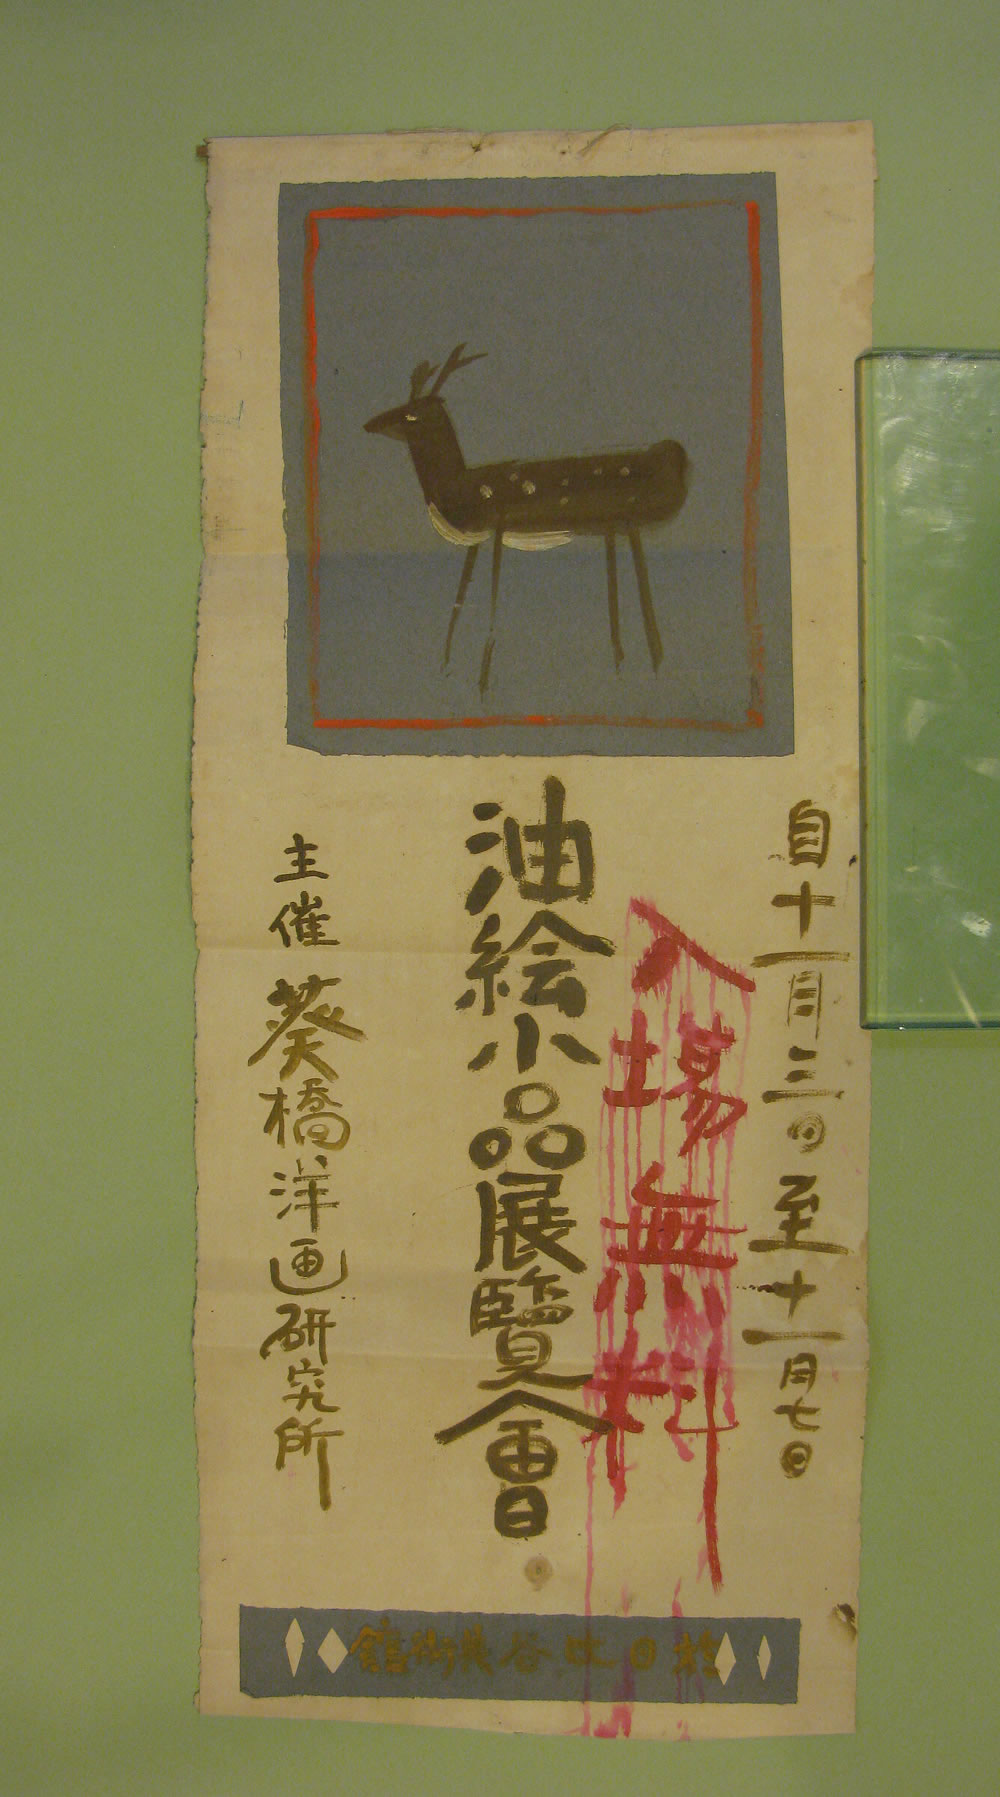 自十一月三日至十一月七日
入場無料
油絵小品展覽會
主催 葵橋洋画研究所
於日比谷美術館